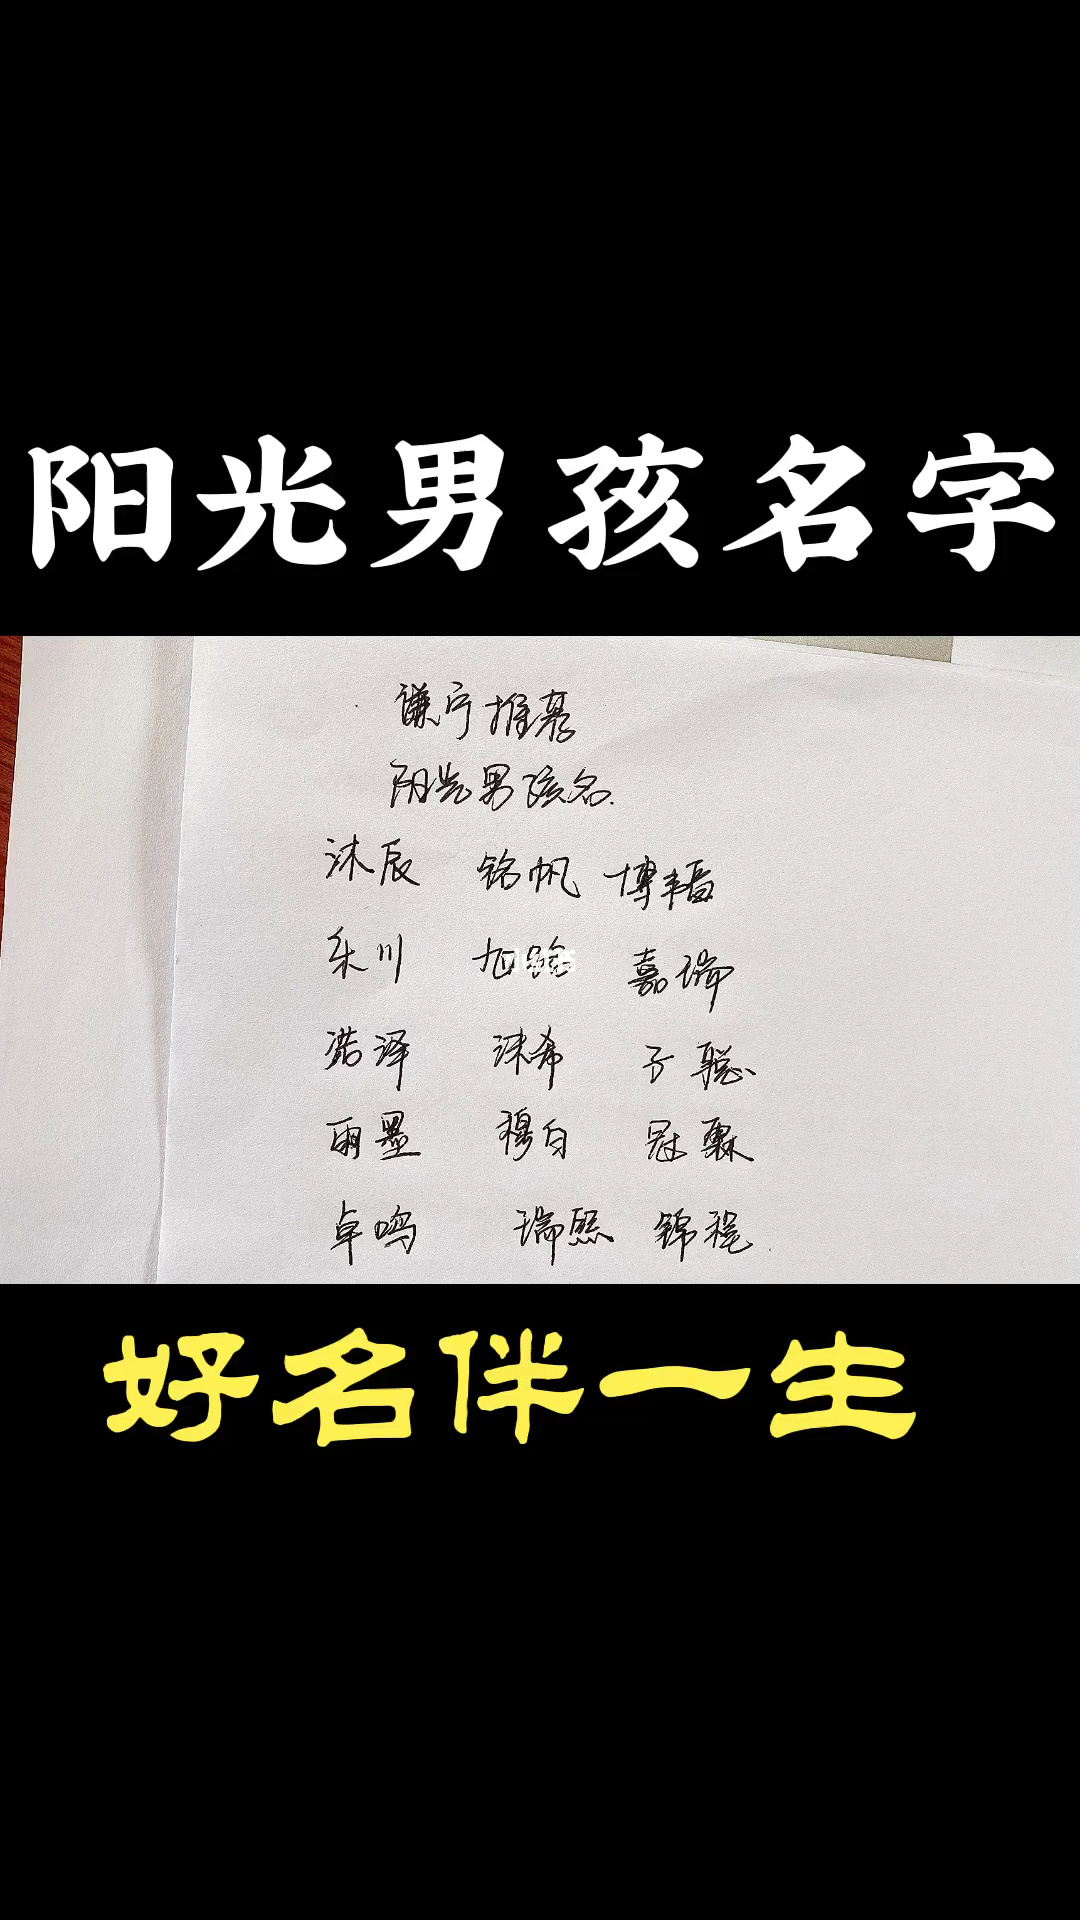 阳光男孩名字
谦宁推荐
阳光男孩名
沐辰 铭帆 博韬
乐川 旭
嘉瑞
浩泽 沐希 子聪
雨墨 穆白 冠霖
卓鸣 瑞熙 锦程
好名伴一生